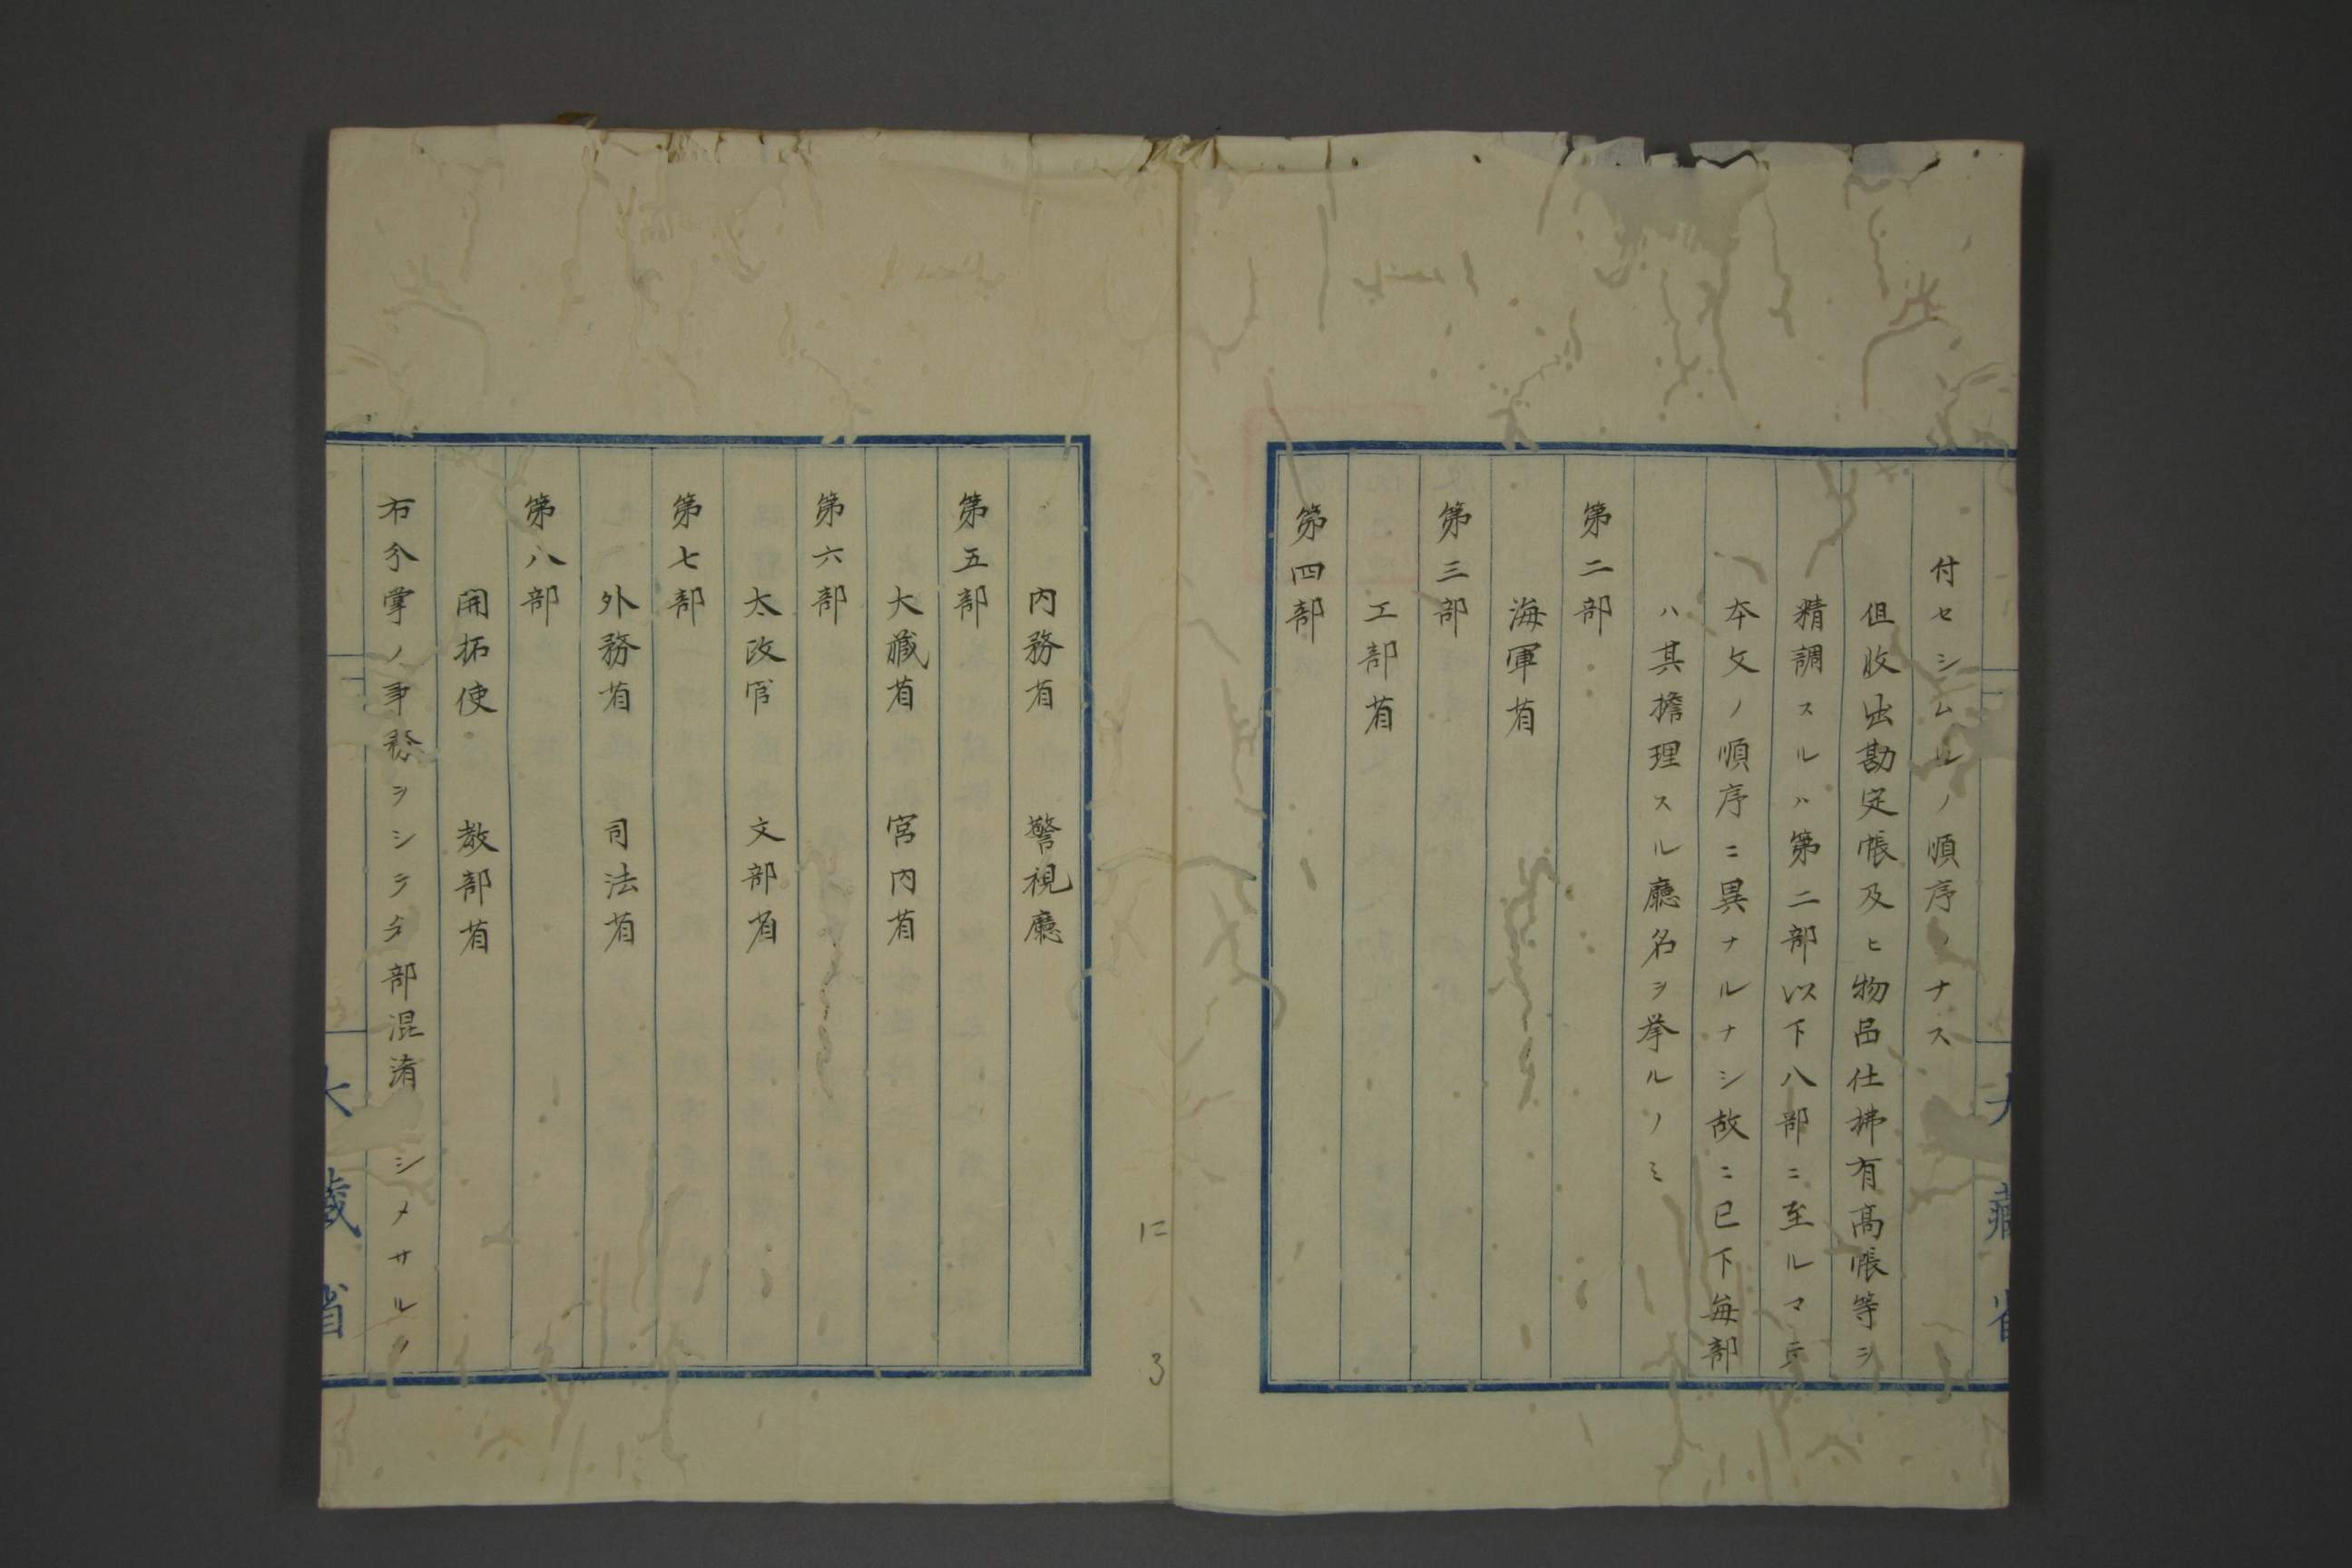 付セシムルノ順序ノナス
但收出勘定帳及ヒ物品仕拂有高帳等ヲ
精調スルハ第二部以下八部ニ至ルマテ
本文ノ順序ニ異ナルナシ故ニ已下每部
ハ其擔理スル廳名ヲ挙ルノミ
第二部
海軍省
第三部
工部省
第四部
大藏省
内務省 警視廳
第五部
大藏省 宮内省
第六部
太政官 文部省
第七部
外務省 司法省
第八部
開拓使 教部省
右分掌ノ事務ヲシテ部混淆シメサル
大藏省
に
3